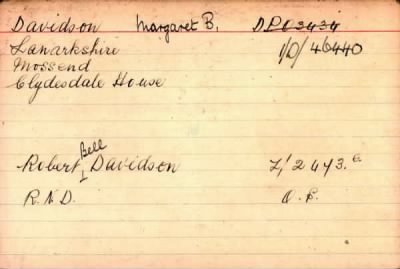 Davidson Margaret B. DP03434
Lanarkshire 1/D/46440
Mossend
Clydesdale House
Bell
Robert Davidson Z/2443.
R.N.D. O.S.